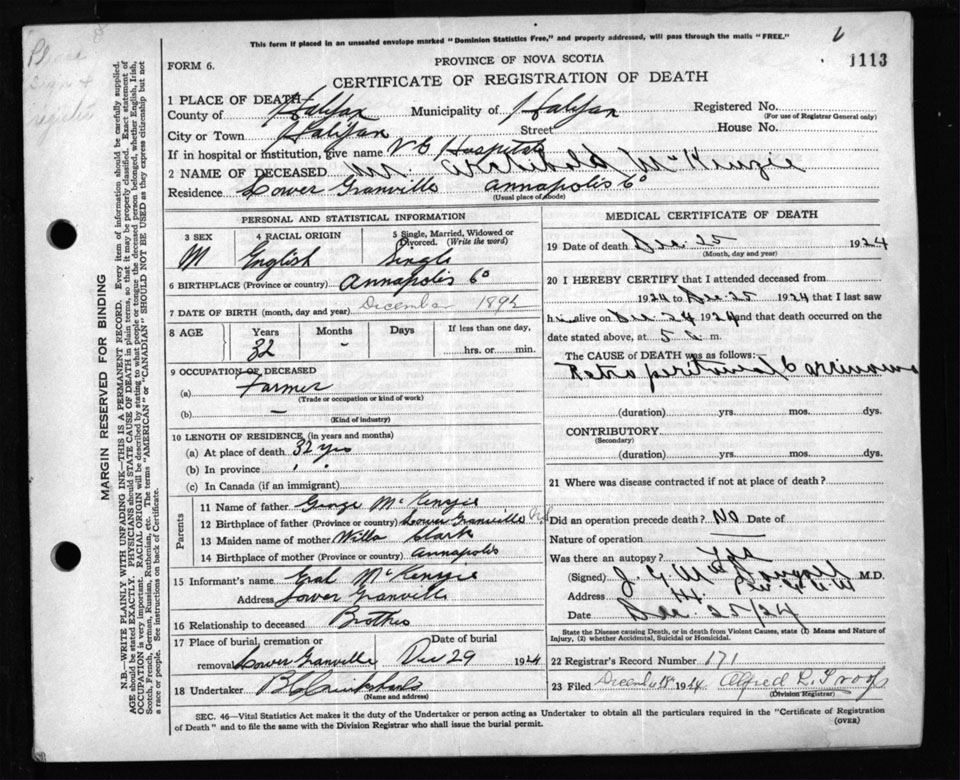 This form if placed in an unsealed envelope marked "Dominion Statistics Free," and properly addressed, will pass through the mails "FREE."
1113
FORM 6.
PROVINCE OF NOVA SCOTIA
CERTIFICATE OF REGISTRATION OF DEATH
1 PLACE OF DEATH
County of Halifax Municipality of Halifax Registered No.
(For use of Registrar General only)
City or Town Halifax Street House No.
If in hospital or institution, give name V G Hospital
2 NAME OF DECEASED Mr. Archibald McKenzie
Residence Lower Granville Annapolis Co
(Usual place of abode)
PERSONAL AND STATISTICAL INFORMATION
3 SEX 4 RACIAL ORIGIN 5 Single, Married, Widowed or Divorced. (Write the word)
M English Single
6 BIRTHPLACE (Province or country) Annapolis Co
7 DATE OF BIRTH (month, day and year) December 1892
8 AGE Years Months Days If less than one day,
32 - hrs. or min.
9 OCCUPATION OF DECEASED
(a) Farmer
(Trade or occupation or kind of work)
(b) —
(Kind of industry)
10 LENGTH OF RESIDENCE (in years and months)
(a) At place of death 32 yrs
(b) In province " "
(c) In Canada (if an immigrant)
Parents
11 Name of father George McKenzie
12 Birthplace of father (Province or country) Lower Granville
13 Maiden name of mother Willa Clark
14 Birthplace of mother (Province or country) Annapolis
15 Informant's name McKenzie
Address Lower Granville
16 Relationship to deceased Brother
17 Place of burial, cremation or removal Lower Granville Date of burial Dec 29 1924
18 Undertaker
(Name and address)
MEDICAL CERTIFICATE OF DEATH
19 Date of death Dec. 25 1924
(Month, day and year)
20 I HEREBY CERTIFY that I attended deceased from
1924 to Dec. 25 1924 that I last saw
him alive on Dec 24 1924 and that death occurred on the
date stated above, at 5 m.
The CAUSE OF DEATH was as follows:
Retro peritoneal
(duration) yrs. mos. dys.
CONTRIBUTORY
(Secondary)
(duration) yrs. mos. dys.
21 Where was disease contracted if not at place of death?
Did an operation precede death? No Date of
Nature of operation —
Was there an autopsy? Yes
(Signed) J. G. M.D.
Address
Date Dec. 25/24
State the Disease causing Death, or in death from Violent Causes, state (1) Means and Nature of Injury, (2) whether Accidental, Suicidal or Homicidal.
22 Registrar's Record Number 171
23 Filed December 1924 Alfred
(Division Registrar)
SEC. 46—Vital Statistics Act makes it the duty of the Undertaker or person acting as Undertaker to obtain all the particulars required in the "Certificate of Registration
of Death" and to file the same with the Division Registrar who shall issue the burial permit.
(OVER)
MARGIN RESERVED FOR BINDING
N.B.—WRITE PLAINLY WITH UNFADING INK—THIS IS A PERMANENT RECORD. Every item of information should be carefully supplied.
AGE should be stated EXACTLY. PHYSICIANS should STATE CAUSE OF DEATH in plain terms, so that it may be properly classified. Exact statement of
OCCUPATION is very important. RACIAL ORIGIN will be described by stating to what people or tongue the deceased person belonged, whether English, Irish,
Scotch, French, German, Russian, Ruthenian, etc. The terms "AMERICAN" or "CANADIAN" SHOULD NOT BE USED as they express citizenship but not
a race or people. See instructions on back of Certificate.